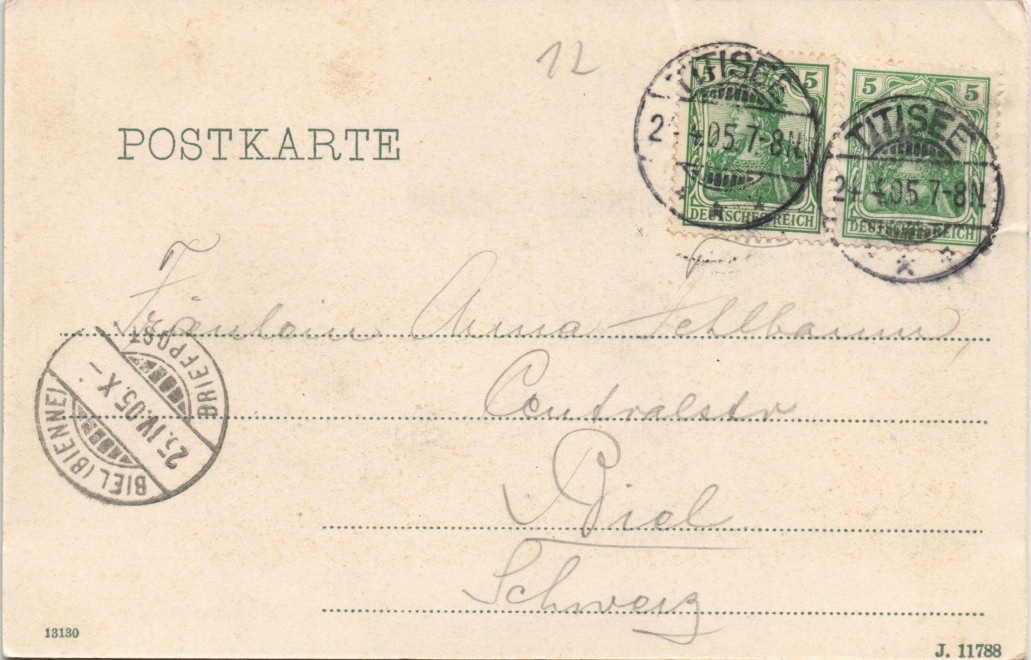 12
POSTKARTE
5
DEUTSCHES REICH
TITISEE
24.4.05.7-8N.
5 5
DEUTSCHES REICH
TITISEE
24.4.05.7-8N.
Fräulein Anna Fehlbaum,
Centralstr
Biel
Schweiz
BRIEFPOST
25.IV.05.X-
BIEL (BIENNE)
13130
J. 11788